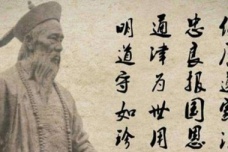 忠良报国恩
通津为世用
明道守如珍